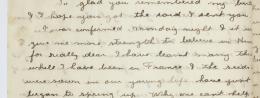 To glad you remembered my
I I hope you got the card I sent you
I was confirmed Monday night I it
give me more strength to believe in the
for really dear. I have learnt many the
while I have been in France & the seeds
were sown in our young life have just
began to spring up. Why one can't help